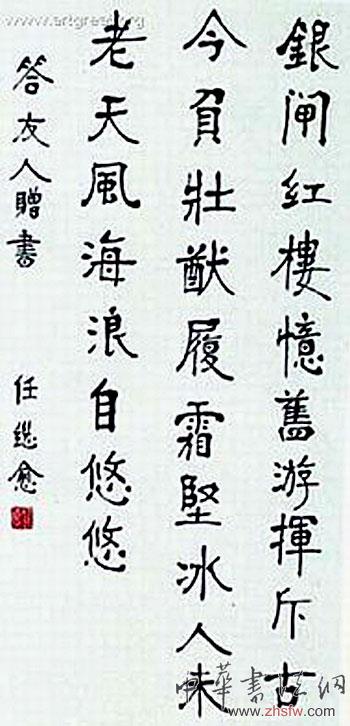 銀闸红樓憶舊游揮斥古
今負壯猷履霜堅冰人未
老天風海浪自悠悠
答友人贈書
任继愈
www.artgree.org
中華書法網
www.zhsfw.com